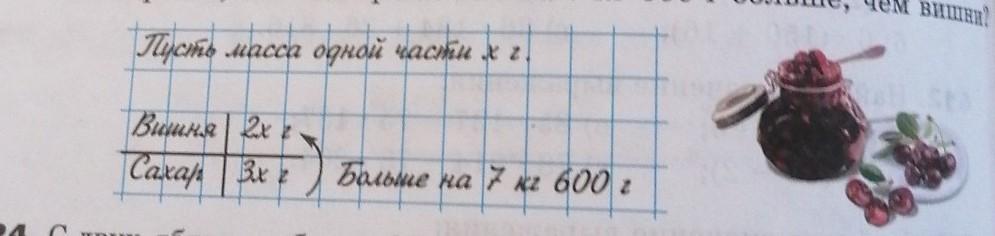 больше, чем вишни?
Пусть масса одной части x г.
Вишня 2x г
Сахар 3x г Больше на 7 кг 600 г